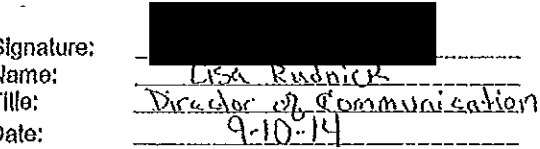 Signature:
Name: Lisa Rudnick
Title: Director of Communication
Date: 9-10-14